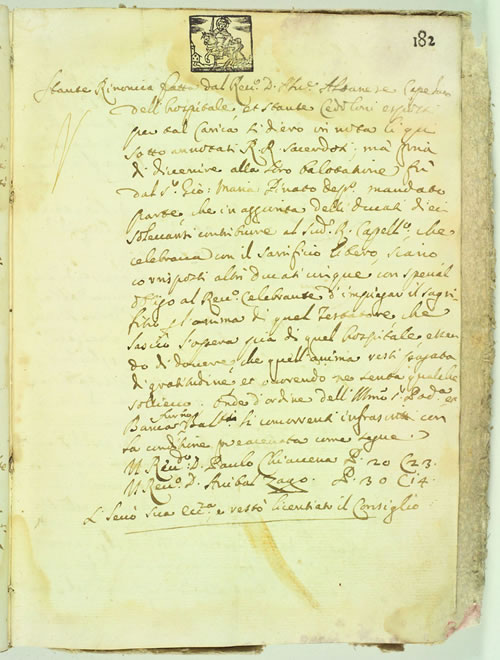 182
Stante Rinoncia fatta dal Rev.º D. Albanese Capelano
dell'hospitale, et stante Cedoloni esposti
per tal Carica si diero in nota li qui
sotto annotati R.R. Sacerdoti, mà pria
di divenire alla loro balotatione fù
dal S.r Gio: Maria Zinato mandato
parte, che in aggionta delli ducati dieci
contribuire al Sud.º R. Capell.º, che
celebrava con il Sacrificio libero, siano
corrisposti altri ducati cinque con special
obligo al Rev.º Celebrante d'impiegar il Sagri-
ficio l'anima di quel Testatore che
lasciò l'opera pia di quel hospitale, essen-
do di dovere, che quell'anima resti pagata
di gratitudine, et occorendo ne senta qualche
sollievo. Onde d'ordine dell'Illmo S.r Pod.à et
furno li concorrenti infrascritti con
la conditione preacenata come segue.
M. Rev.do D. Paulo Chiavena P. 20 C 23.
M. Rev.º D. Anibal Zago. P. 30 C 14.
Si levò sua Ecc.a e restò licentiato il Consiglio